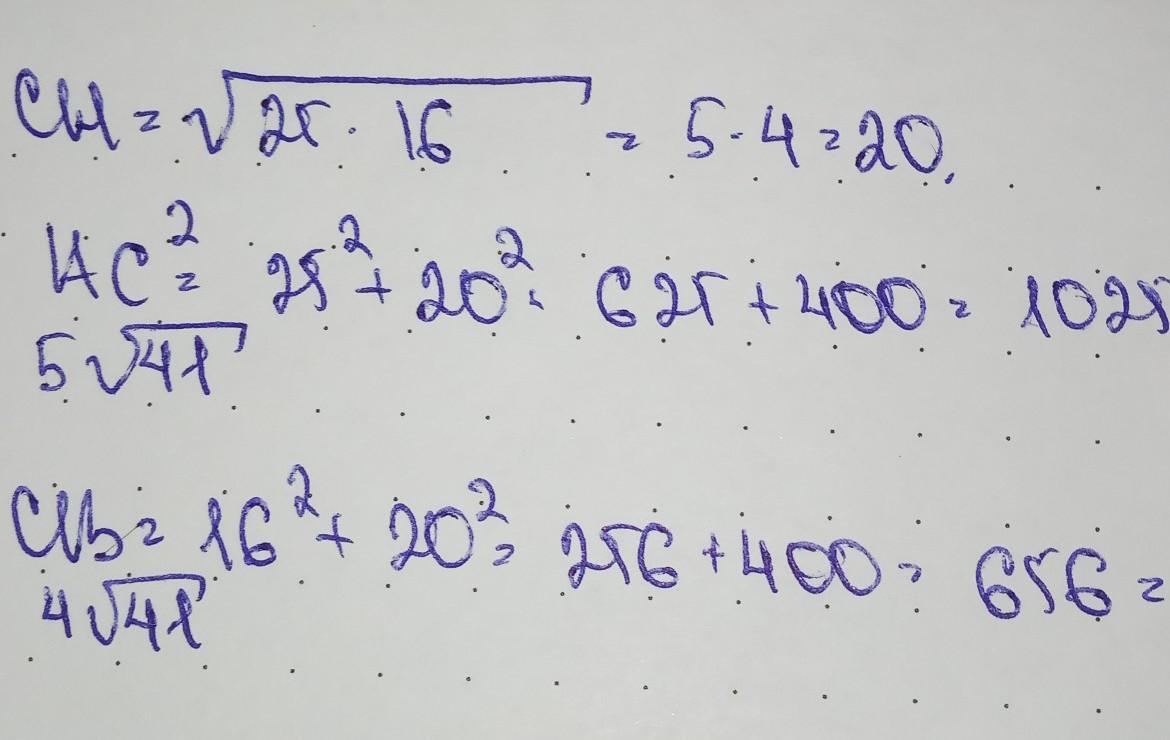 CH = √25 · 16 = 5 · 4 = 20.
AC² = 25² + 20² = 625 + 400 = 1025
5√41
CHB = 16² + 20² = 256 + 400 = 656 =
4√41